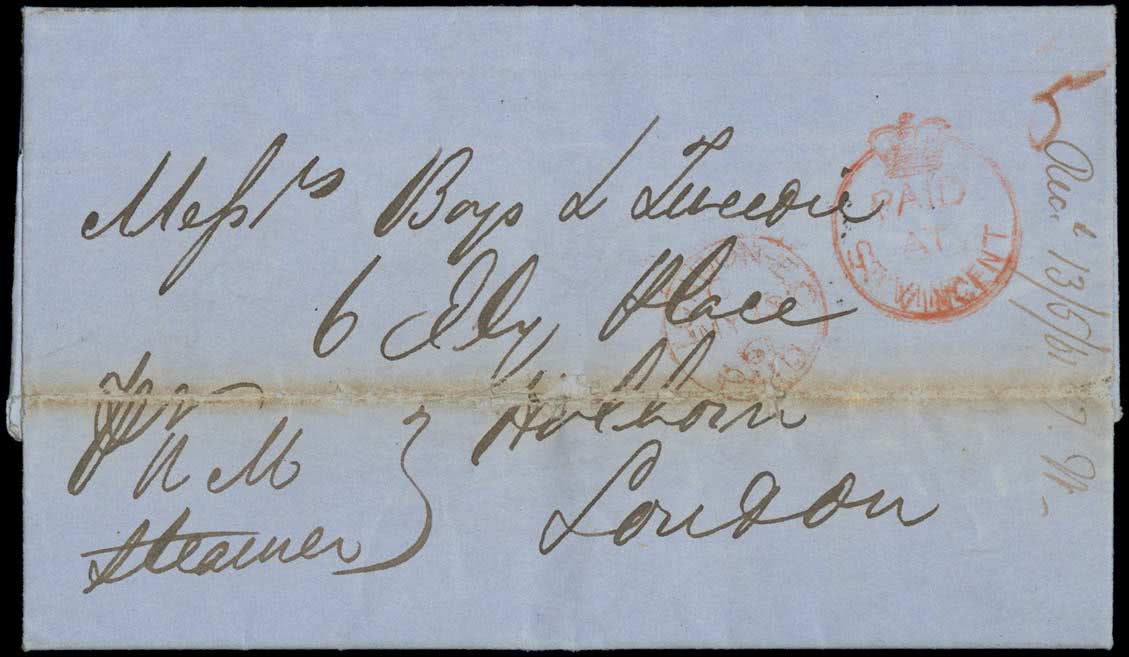 Messrs Boys & Tweedie
6 Ely Place
Holborn
London
Per
R M
Steamer
PAID
AT
ST. VINCENT
LONDON-E.C
PAID
MY
Recd 13/5/61